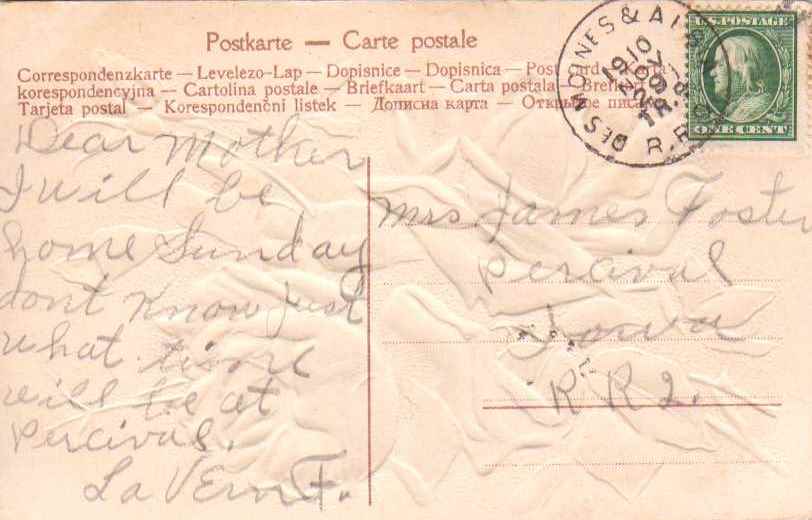 Postkarte — Carte postale
Correspondenzkarte — Levelezo-Lap — Dopisnice — Dopisnica — Post card
korespondencyjna — Cartolina postale — Briefkaart — Carta postala —
Tarjeta postal — Korespondenčni listek — Дописна карта —
U.S. POSTAGE
ONE CENT
DES MOINES &
1910
TR. 8
R.P.
Dear Mother
I will be
home Sunday
dont know just
what time
will be at
Percival.
LaVern F.
Mrs James Foster
Percival
Iowa
R R 2.